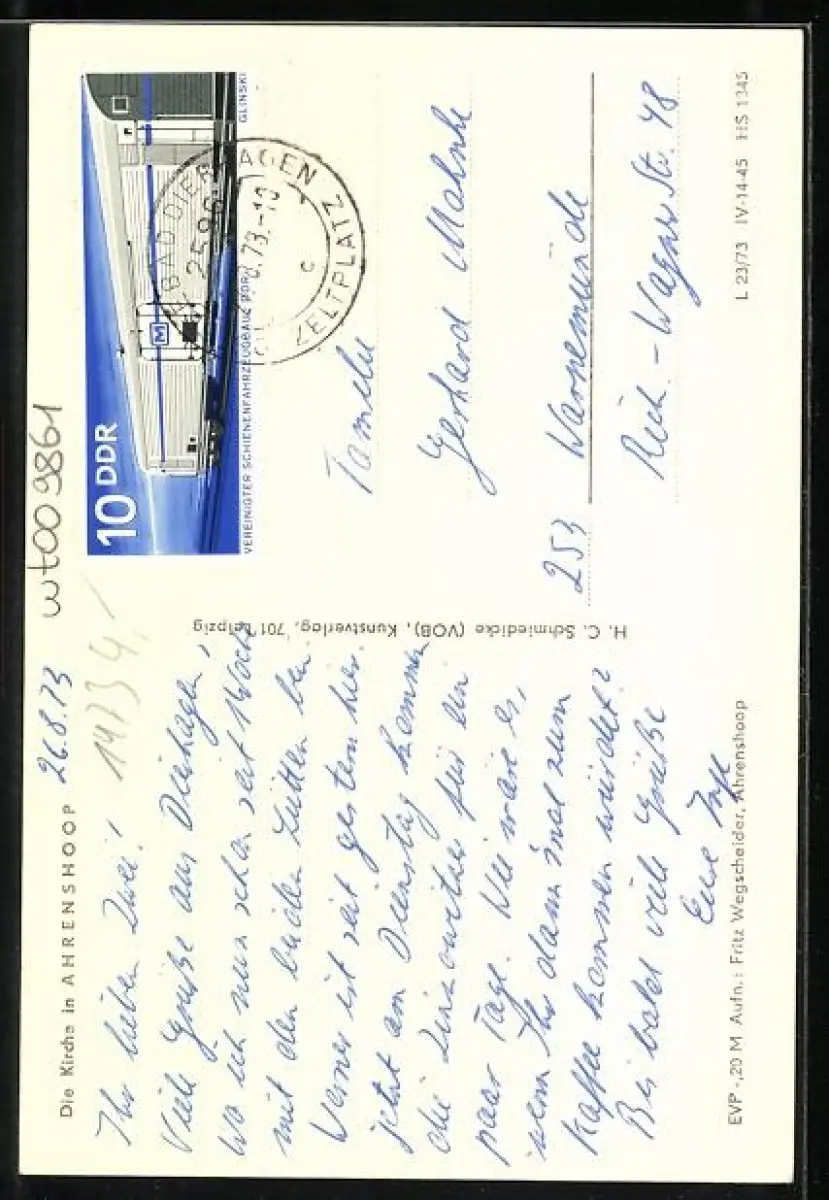 Die Kirche in AHRENSHOOP
26.8.73
wt009861
14734,-
Ihr lieben Zwei!
Viele Grüße aus Dierhagen,
wo ich nun schon seit 1 Woche
mit den beiden Lütten bin.
Werner ist seit gestern hier.
jetzt am Dienstag kommen
die Zinnowitzer für ein
paar Tage. Wie wäre es,
wenn Ihr dann mal zum
Kaffee kommen würdet?
Bis bald viele Grüße
Eure Inge
EVP -,20 M Aufn.: Fritz Wegscheider, Ahrenshoop
H. C. Schmiedicke (VOB), Kunstverlag, 701 Leipzig
10 DDR
M
VEREINIGTER SCHIENENFAHRZEUGBAU DDR
GLINSKI
BAD DIERHAGEN
2596
.8.73.-10
c
ZELTPLATZ
Familie
Gerhard Mahnke
253 Warnemünde
Rich.-Wagner Str. 48
L 23/73 IV-14-45 HS 1345